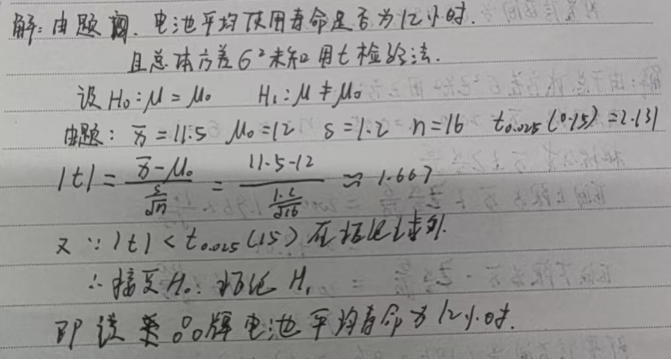 解:由题 电池平均使用寿命是否为12小时.
且总体方差σ²未知用t检验法.
设H₀:μ=μ₀ H₁:μ≠μ₀
由题: x̄=11.5 μ₀=12 s=1.2 n=16 t₀.₀₂₅(0.15)=2.131
|t|=(x̄-μ₀)/(s/√n)=(11.5-12)/(1.2/√16)≈1.667
又∵|t|<t₀.₀₂₅(15) 在拒绝域外.
∴接受H₀:拒绝H₁
即该类品牌电池平均寿命为12小时.